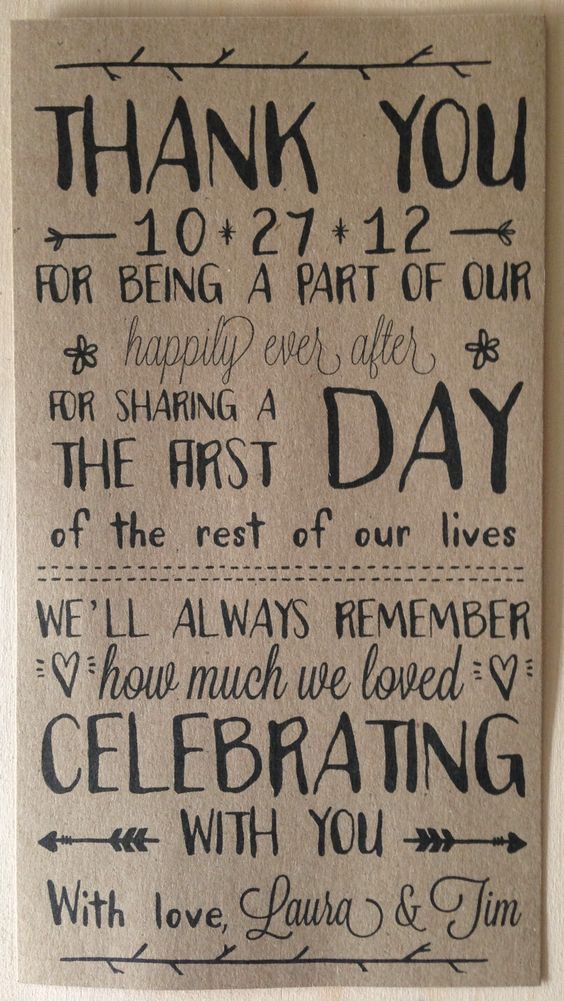 THANK YOU
10 * 27 * 12
FOR BEING A PART OF OUR
happily ever after
FOR SHARING A
THE FIRST DAY
of the rest of our lives
WE'LL ALWAYS REMEMBER
how much we loved
CELEBRATING
WITH YOU
With love, Laura & Tim